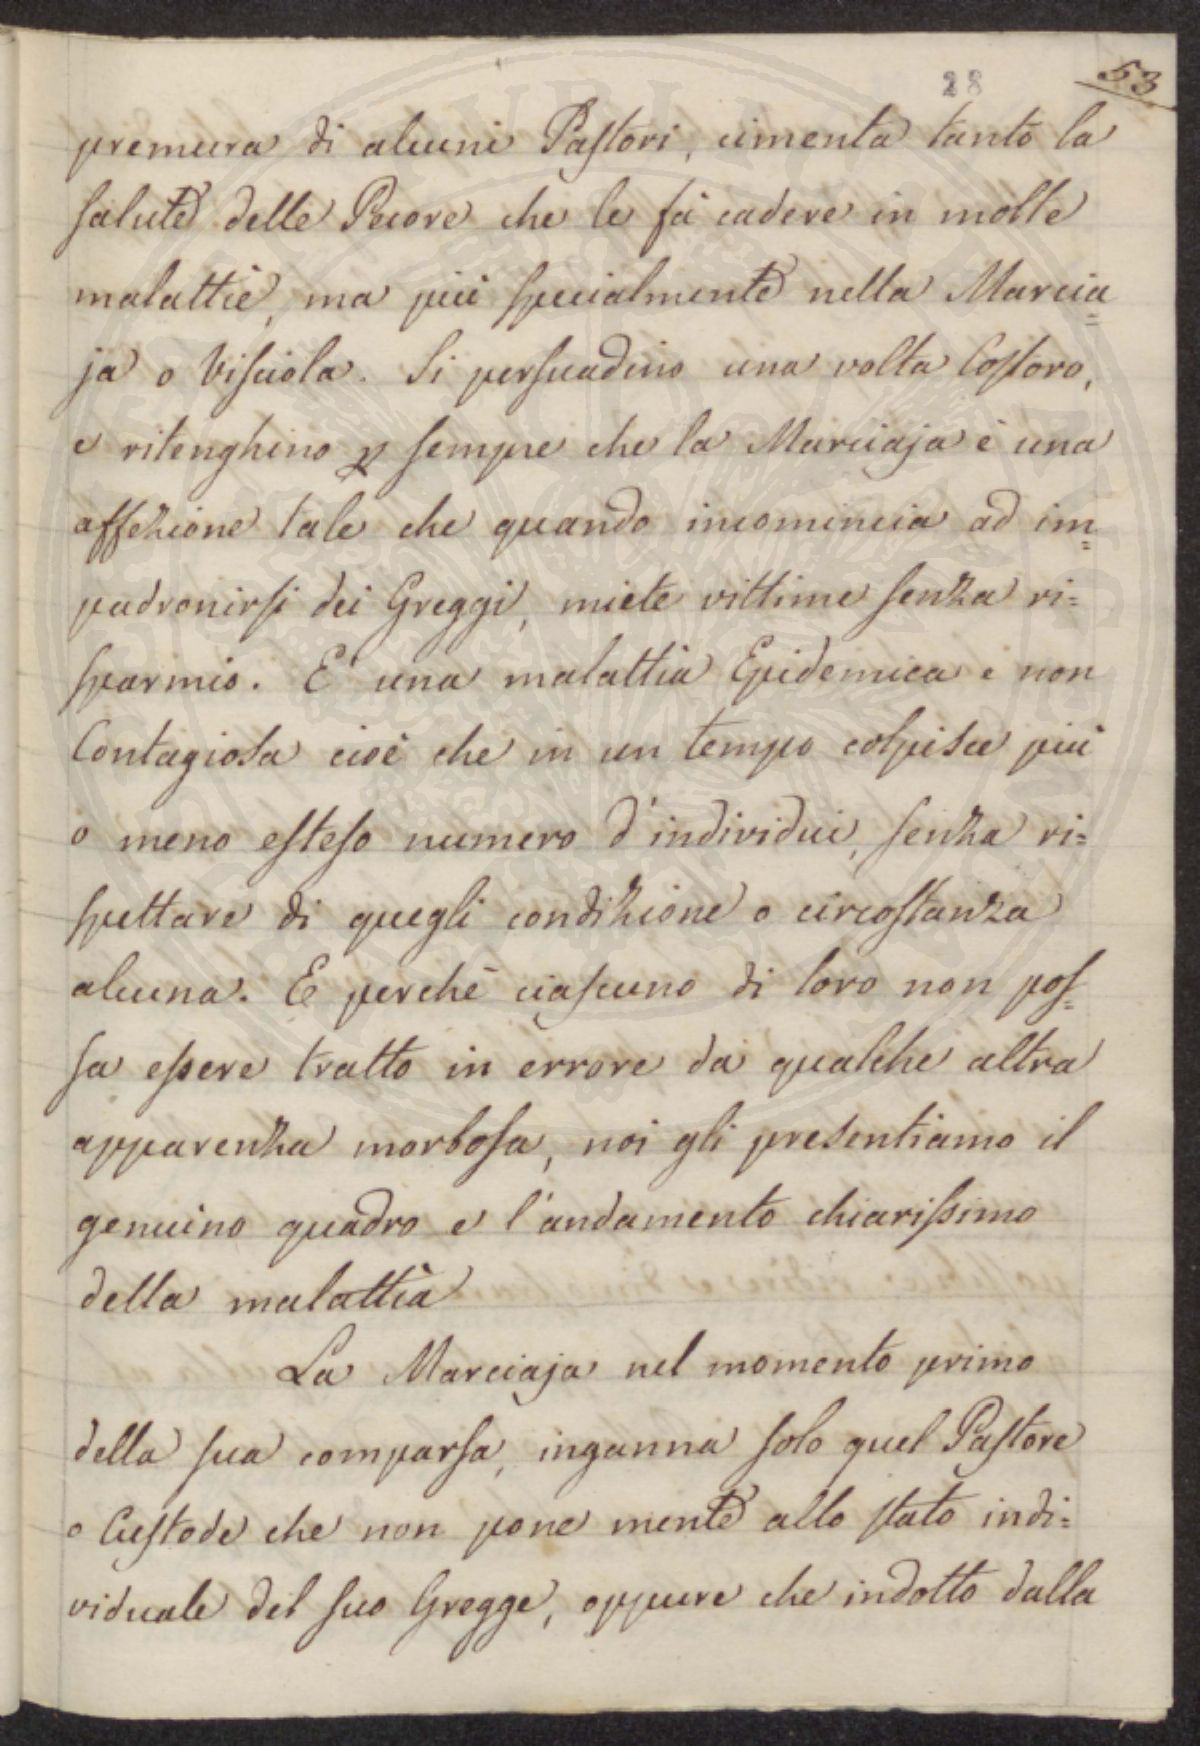 28 53
premura di alcuni Pastori, cimenta tanto la
salute delle Pecore che le fà cadere in molte
malattie, ma più specialmente nella Marcia=
ja o Visciola. Si persuadino una volta Costoro,
e ritenghino p sempre che la Marciaja è una
affezione tale che quando incomincia ad im=
padronirsi dei Greggi, miete vittime senza ri=
sparmio. E' una malattia Epidemica e non
Contagiosa cioè che in un tempo colpisce più
o meno esteso numero d'individui, senza ri=
spettare di quegli condizione o circostanza
alcuna. E perchè ciascuno di loro non pos=
sa essere tratto in errore da qualche altra
apparenza morbosa, noi gli presentiamo il
genuino quadro e l'andamento chiarissimo
della malattia
La Marciaja nel momento primo
della sua comparsa, inganna solo quel Pastore
o Custode che non pone mente allo stato indi=
viduale del suo Gregge, oppure che indotto dalla